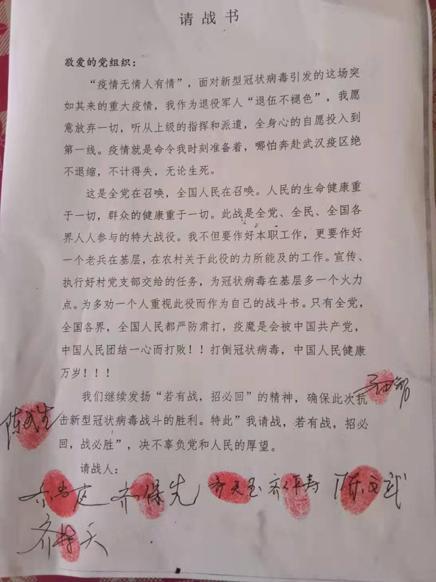 请 战 书
敬爱的党组织：
“疫情无情人有情”，面对新型冠状病毒引发的这场突
如其来的重大疫情，我作为退役军人“退伍不褪色”，我愿
意放弃一切，听从上级的指挥和派遣，全身心的自愿投入到
第一线。疫情就是命令我时刻准备着，哪怕奔赴武汉疫区绝
不退缩，不计得失，无论生死。
这是全党在召唤，全国人民在召唤。人民的生命健康重
于一切，群众的健康重于一切。此战是全党、全民、全国各
界人人参与的特大战役。我不但要作好本职工作，更要作好
一个老兵在基层，在农村关于此役的力所能及的工作。宣传、
执行好村党支部交给的任务，为冠状病毒在基层多一个火力
点。为多劝一个人重视此役而作为自己的战斗书。只有全党，
全国各界，全国人民都严防肃打，疫魔是会被中国共产党，
中国人民团结一心而打败！！打倒冠状病毒，中国人民健康
万岁！！！
我们继续发扬“若有战，招必回”的精神，确保此次抗
击新型冠状病毒战斗的胜利。特此”我请战，若有战，招必
回，战必胜”，决不辜负党和人民的厚望。
请战人：
齐保先 陈文武